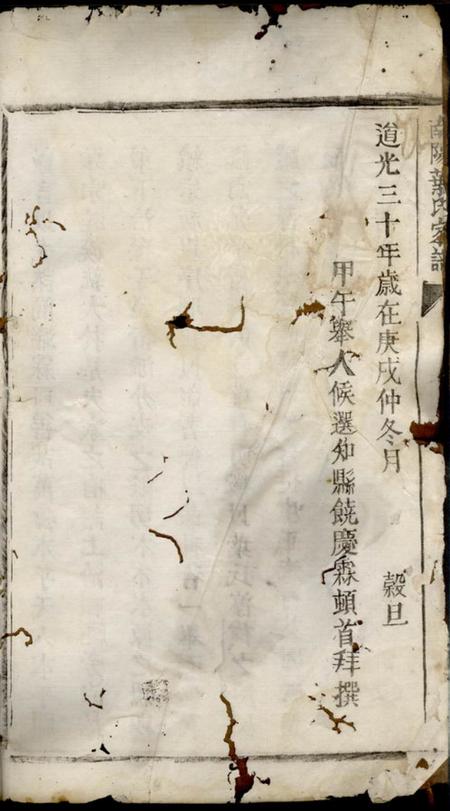 南陽葉氏家譜
道光三十年歲在庚戌仲冬月 穀旦
甲午舉人候選知縣饒慶霖頓首拜撰